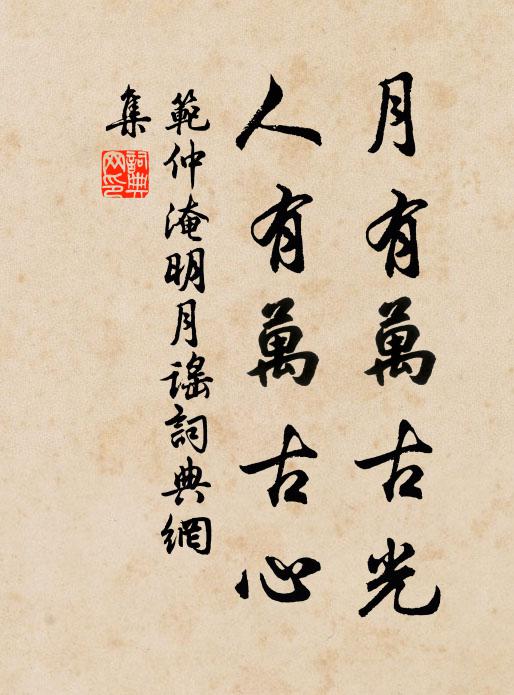 月有萬古光
人有萬古心
範仲淹明月謠詞典網
集
詞典
网印